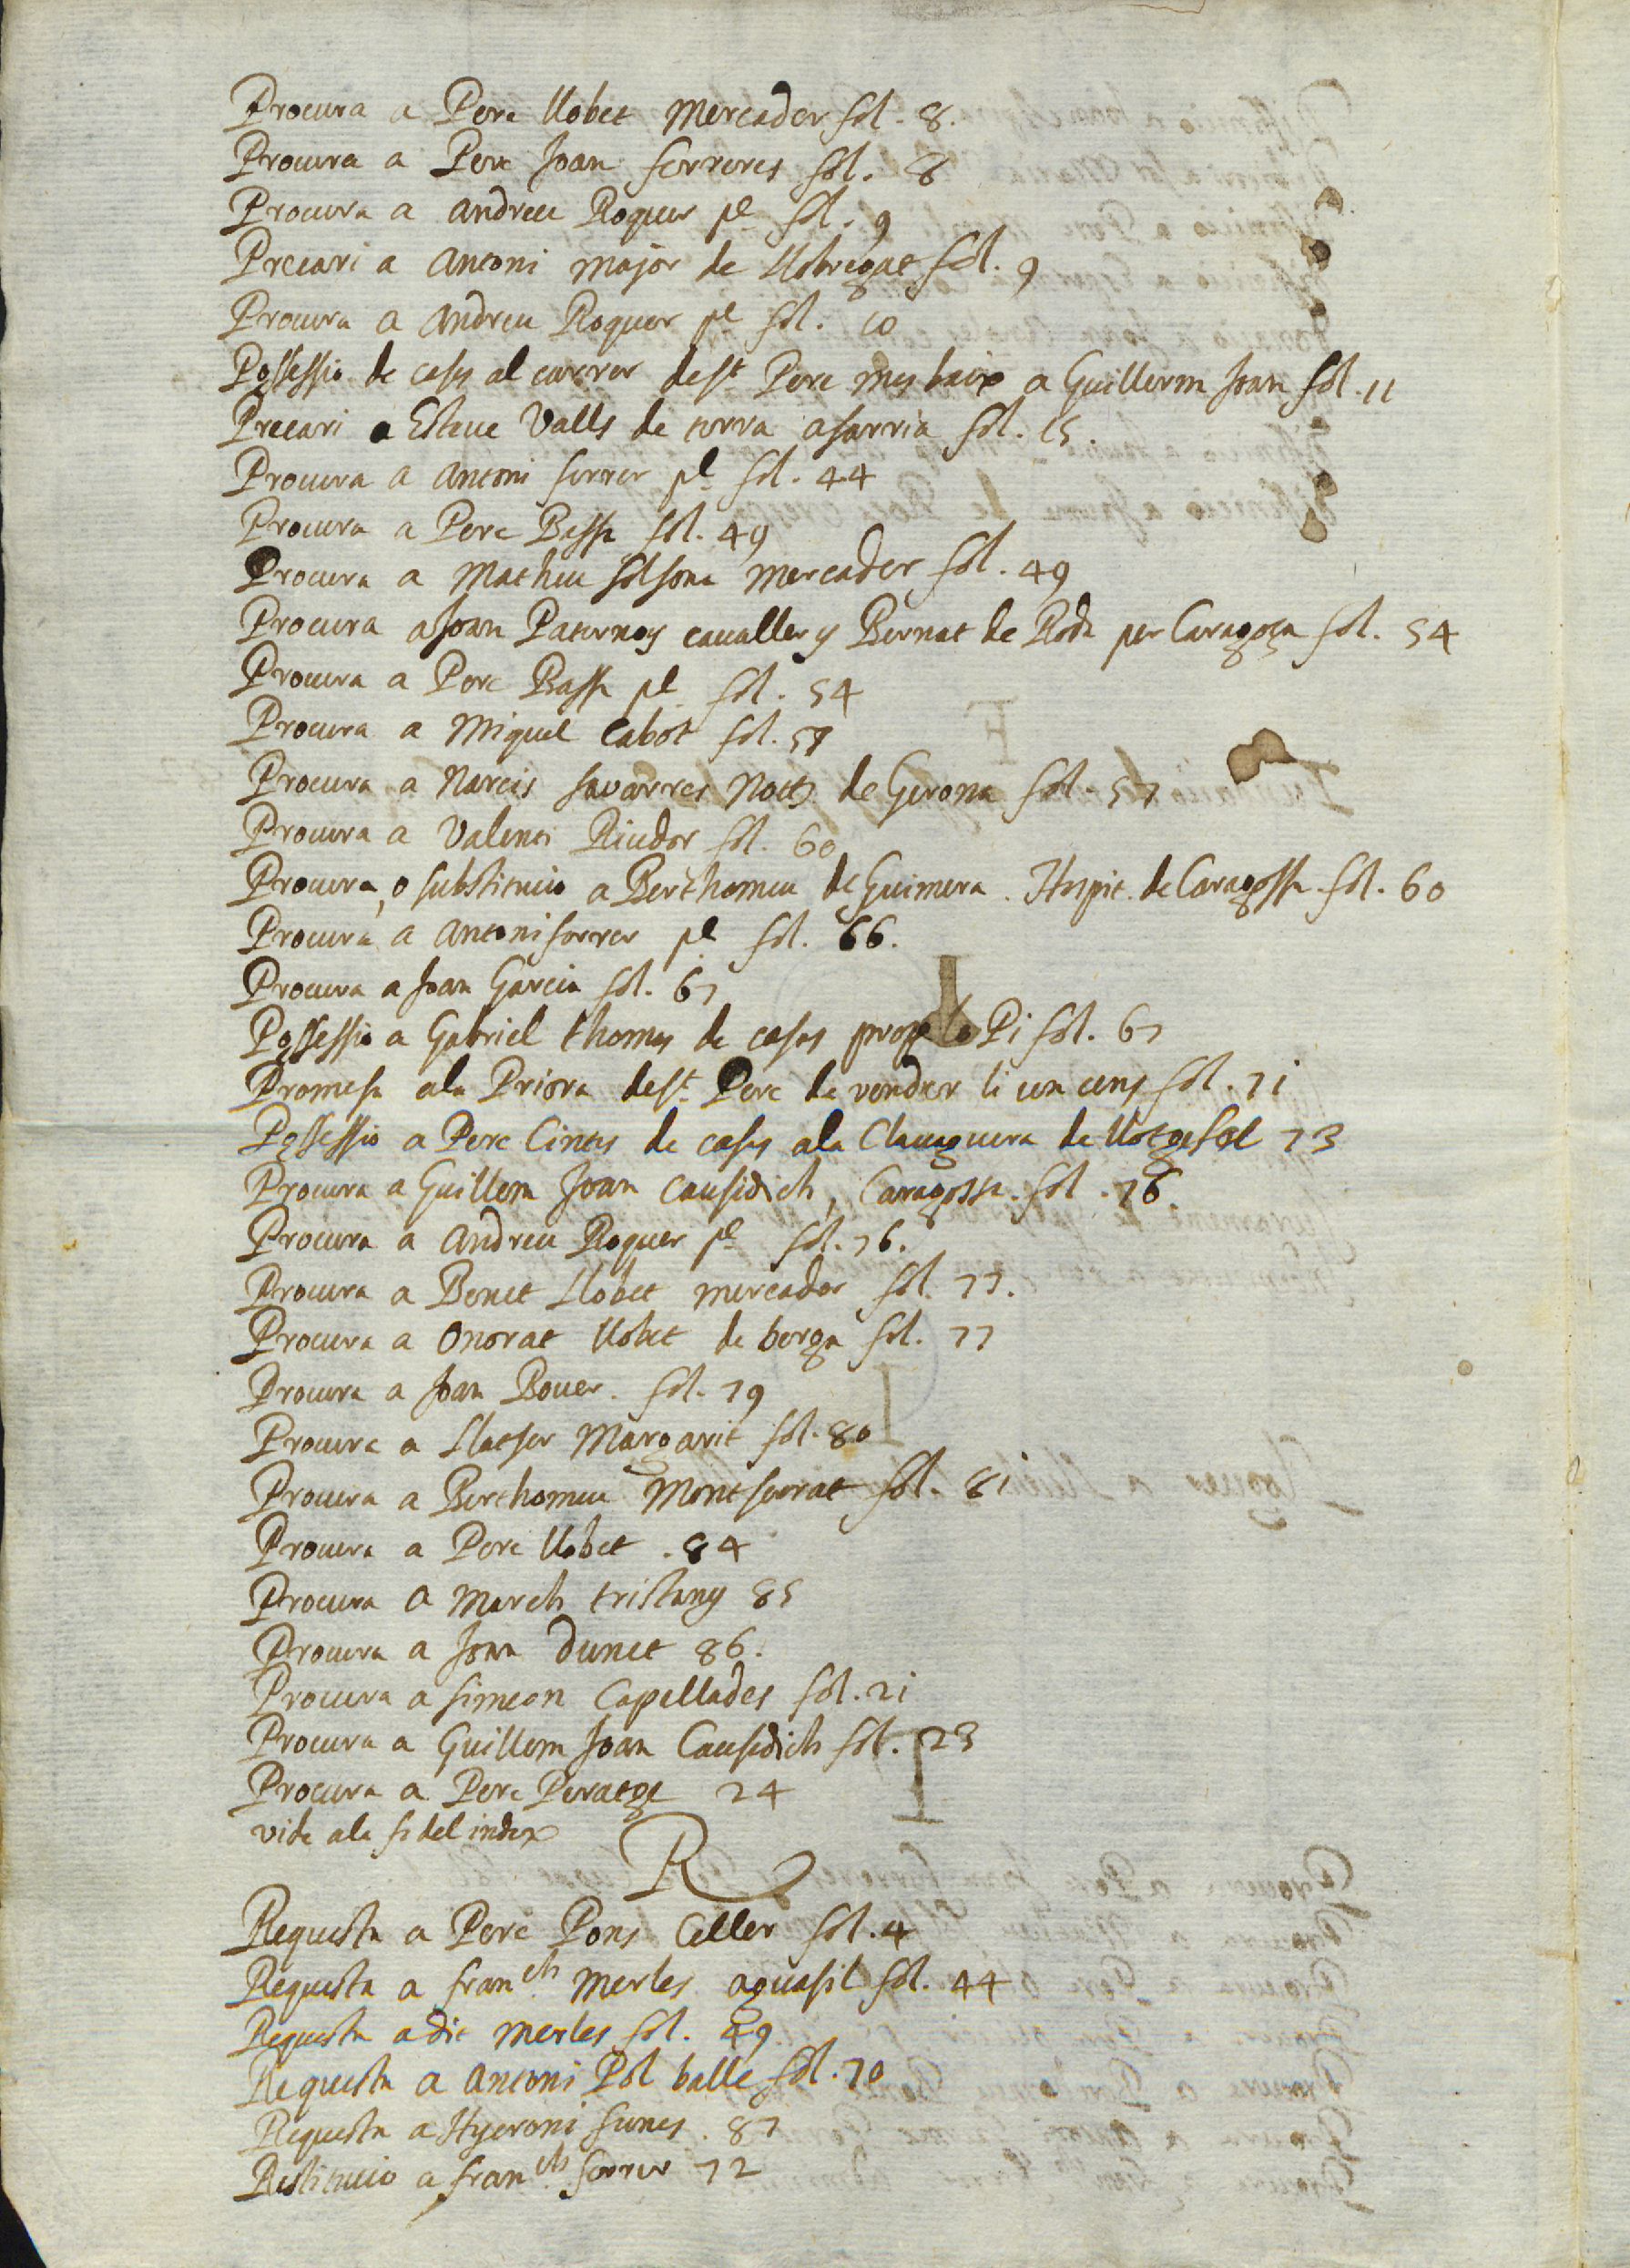 Procura a Pere Llobet Mercader fol. 8.
Procura a Pere Joan ferreres fol. 8
Procura a Andreu Roquer pe fol. 9
Precari a Antoni major de Llobregat fol. 9
Procura a Andreu Roquer pe fol. 10
Possessio de cases al carrer de st Pere mes baix a Guillerm Joan fol. 11
Precari a Esteue Valls de torra a sarria fol. 15.
Procura a Antoni ferrer pe fol. 44
Procura a Pere Bassa fol. 49
Procura a Matheu solsona Mercader fol. 49
Procura a Joan Paternoy caualler y Bernat de Roda per Caragoça fol. 54
Procura a Pere Bassa pe fol. 54
Procura a Miquel Cabot fol. 57
Procura a Narcis savarres Nott de Gerona fol. 57
Procura a Valenti Riudor fol. 60
Procura, o substitucio a Berthomeu de Guimera. Hospit. de Caragossa. fol. 60
Procura a Antoni ferrer pe fol. 66.
Procura a Joan Garcia fol. 67
Possessio a Gabriel thomas de cases prop lo Pi fol. 67
Promesa a la Priora de st Pere de vendrer li un cens fol. 71
Possessio a Pere Cintes de cases a la Clauaguera de Llotge fol 73
Procura a Guillem Joan Causidich, Caragossa. fol. 76
Procura a Andreu Roquer pe fol. 76.
Procura a Benet Llobet mercader fol. 77.
Procura a Onorat Llobet de berga fol. 77
Procura a Joan Bouer. fol. 79
Procura a Llatser Margarit fol. 80
Procura a Berthomeu Montserrat fol. 81
Procura a Pere Llobet. 84
Procura a March tristany 85
Procura a Joan dunet 86.
Procura a simeon Capellades fol. 21
Procura a Guillem Joan Causidich fol. 23
Procura a Pere Peratge 24
vide a la fi del index
R
Requesta a Pere Pons Celler fol. 4
Requesta a franch Merles aguasil fol. 44
Requesta a dit Merles fol. 49
Requesta a Antoni Pol balle fol. 70
Requesta a Hyeroni sunes. 87
Restitucio a franch ferrer 72